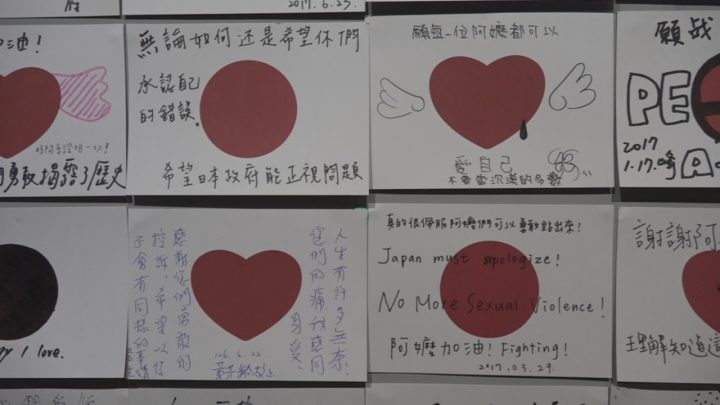 2017.6.25.
加油!
勇敢揭露了歷史
無論如何還是希望你們
承認自己
的錯誤。
希望日本政府能正視問題
願每一位阿嬤都可以
愛自己
不要當沉漠的多數
願战
PE
A
2017
1.17.
y I love.
人生有許多無奈,
您們的痛我感同
身受,
感謝您們勇敢的
控訴,希望以後
不會有同樣的事情
106.6.22.
真的很佩服阿嬤們可以勇敢站出來!
Japan must apologize!
No More Sexual Violence!
阿嬤加油! Fighting!
2017.03.29.
謝謝阿
理解知道這